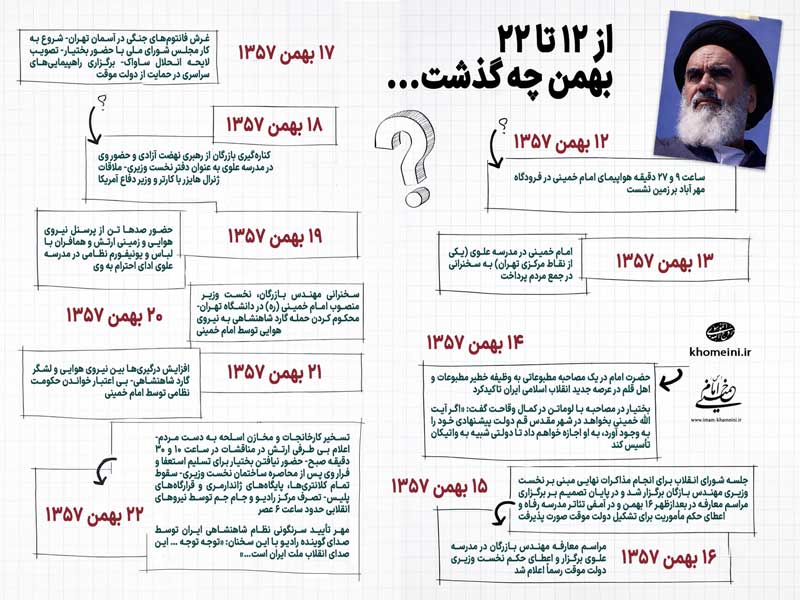 از ۱۲ تا ۲۲
بهمن چه گذشت...
۱۲ بهمن ۱۳۵۷
ساعت ۹ و ۲۷ دقیقه هواپیمای امام خمینی در فرودگاه
مهر آباد بر زمین نشست
۱۳ بهمن ۱۳۵۷
امام خمینی در مدرسه علوی (یکی
از نقاط مرکزی تهران) به سخنرانی
در جمع مردم پرداخت
۱۴ بهمن ۱۳۵۷
حضرت امام در یک مصاحبه مطبوعاتی به وظیفه خطیر مطبوعات و
اهل قلم در عرصه جدید انقلاب اسلامی ایران تاکیدکرد
بختیار در مصاحبه با لوماتن در کمال وقاحت گفت: «اگر آیت
الله خمینی بخواهد در شهر مقدس قم دولت پیشنهادی خود را
به وجود آورد، به او اجازه خواهم داد تا دولتی شبیه به واتیکان
تأسیس کند
khomeini.ir
www.imam-khomeini.ir
۱۵ بهمن ۱۳۵۷
جلسه شورای انقلاب برای انجام مذاکرات نهایی مبنی بر نخست
وزیری مهندس بازرگان برگزار شد و در پایان تصمیم بر برگزاری
مراسم معارفه در بعدازظهر ۱۶ بهمن و در آمفی تئاتر مدرسه رفاه و
اعطای حکم مأموریت برای تشکیل دولت موقت صورت پذیرفت
۱۶ بهمن ۱۳۵۷
مراسم معارفه مهندس بازرگان در مدرسه
علوی برگزار و اعطای حکم نخست وزیری
دولت موقت رسماً اعلام شد
۱۷ بهمن ۱۳۵۷
غرش فانتوم‌های جنگی در آسمان تهران- شروع به
کار مجلس شورای ملی با حضور بختیار- تصویب
لایحه انحلال ساواک- برگزاری راهپیمایی‌های
سراسری در حمایت از دولت موقت
۱۸ بهمن ۱۳۵۷
کناره‌گیری بازرگان از رهبری نهضت آزادی و حضور وی
در مدرسه علوی به عنوان دفتر نخست وزیری- ملاقات
ژنرال هایزر با کارتر و وزیر دفاع آمریکا
۱۹ بهمن ۱۳۵۷
حضور صدها تن از پرسنل نیروی
هوایی و زمینی ارتش و همافران با
لباس و یونیفورم نظامی در مدرسه
علوی ادای احترام به وی
۲۰ بهمن ۱۳۵۷
سخنرانی مهندس بازرگان، نخست وزیر
منصوب امام خمینی (ره) در دانشگاه تهران-
محکوم کردن حمله گارد شاهنشاهی به نیروی
هوایی توسط امام خمینی
۲۱ بهمن ۱۳۵۷
افزایش درگیری‌ها بین نیروی هوایی و لشگر
گارد شاهنشاهی- بی اعتبار خواندن حکومت
نظامی توسط امام خمینی
۲۲ بهمن ۱۳۵۷
تسخیر کارخانجات و مخازن اسلحه به دست مردم-
اعلام بی طرفی ارتش در مناقشات در ساعت ۱۰ و ۳۰
دقیقه صبح- حضور نیافتن بختیار برای تسلیم استعفا و
فرار وی پس از محاصره ساختمان نخست وزیری- سقوط
تمام کلانتری‌ها، پایگاه‌های ژاندارمری و قرارگاه‌های
پلیس- تصرف مرکز رادیو و جام جم توسط نیروهای
انقلابی حدود ساعت ۶ عصر
مهر تأیید سرنگونی نظام شاهنشاهی ایران توسط
صدای گوینده رادیو با این سخنان: «توجه توجه ... این
صدای انقلاب ملت ایران است...»